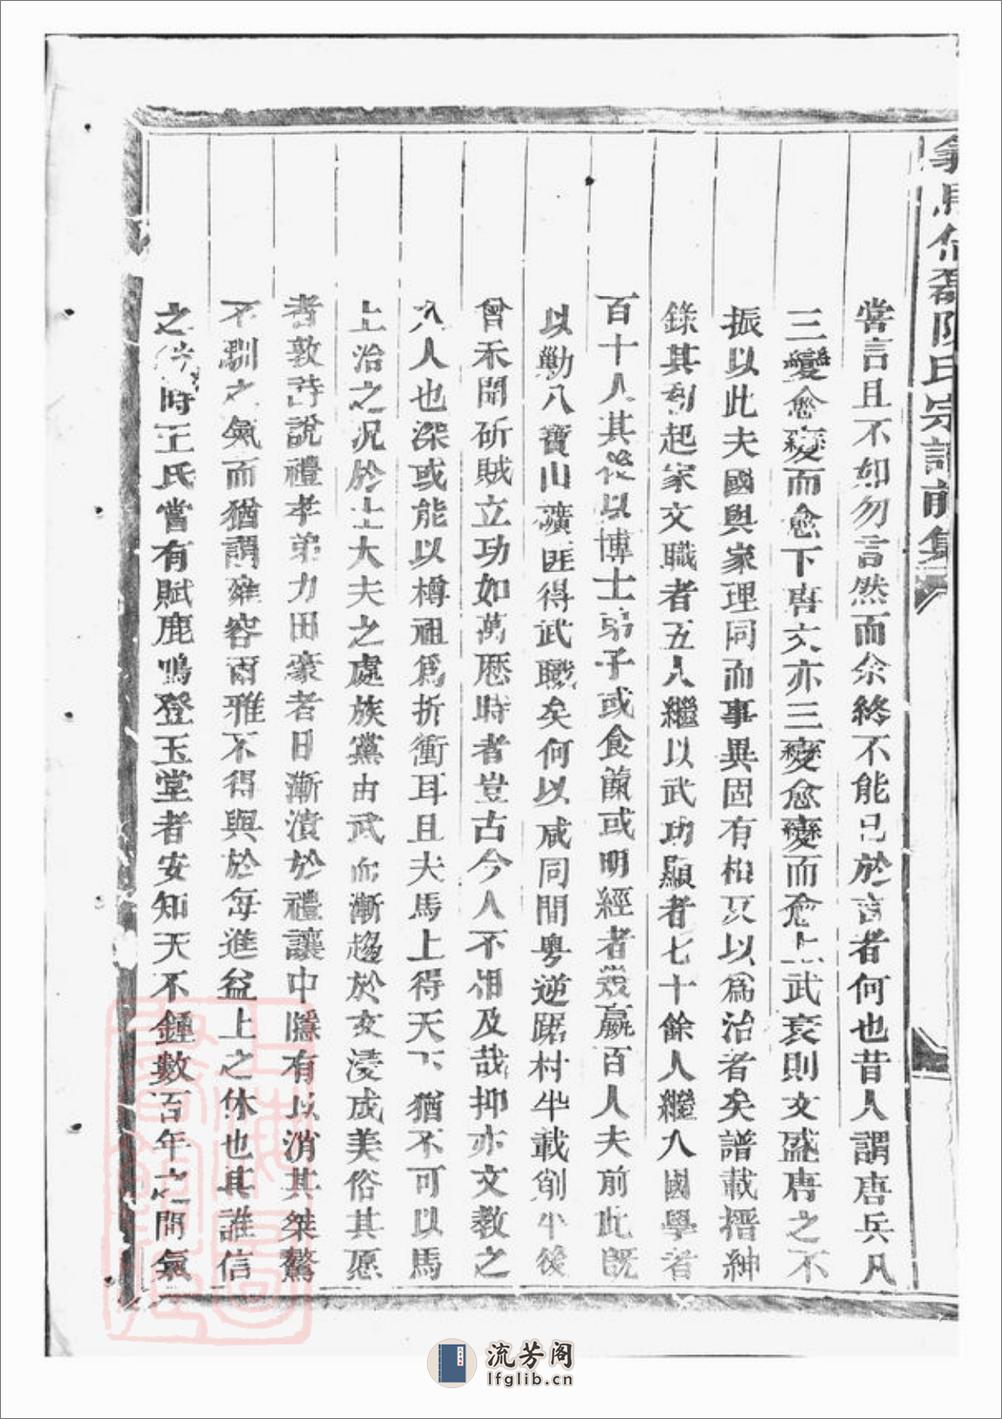 陳氏宗譜前集
嘗言且不如勿言然而余終不能已於言者何也昔人謂唐兵凡
三變愈變而愈下唐文亦三變愈變而愈上武衰則文盛唐之不
振以此夫國與家理同而事異固有相反以爲治者矣譜載搢紳
錄其到起家文職者五人繼以武功顯者七十餘人繼入國學者
百十人其後以博士弟子或食餼或明經者幾贏百人夫前此既
以勦八寶山礦匪得武職矣何以咸同間粤逆踞村半載削平後
曾未聞斫賊立功如萬歷時者豈古今人不相及哉抑亦文教之
入人也深或能以樽俎爲折衝耳且夫馬上得天下猶不可以馬
上治之况於士大夫之處族黨由武而漸趨於文浸成美俗其愿
者敦詩說禮孝弟力田豪者日漸漬於禮讓中隱有以消其桀驁
不馴之氣而猶謂雍容爾雅不得與於每進益上之休也其誰信
之 時王氏嘗有賦鹿鳴登玉堂者安知天不鍾數百年之間氣
流芳阁
lfglib.cn